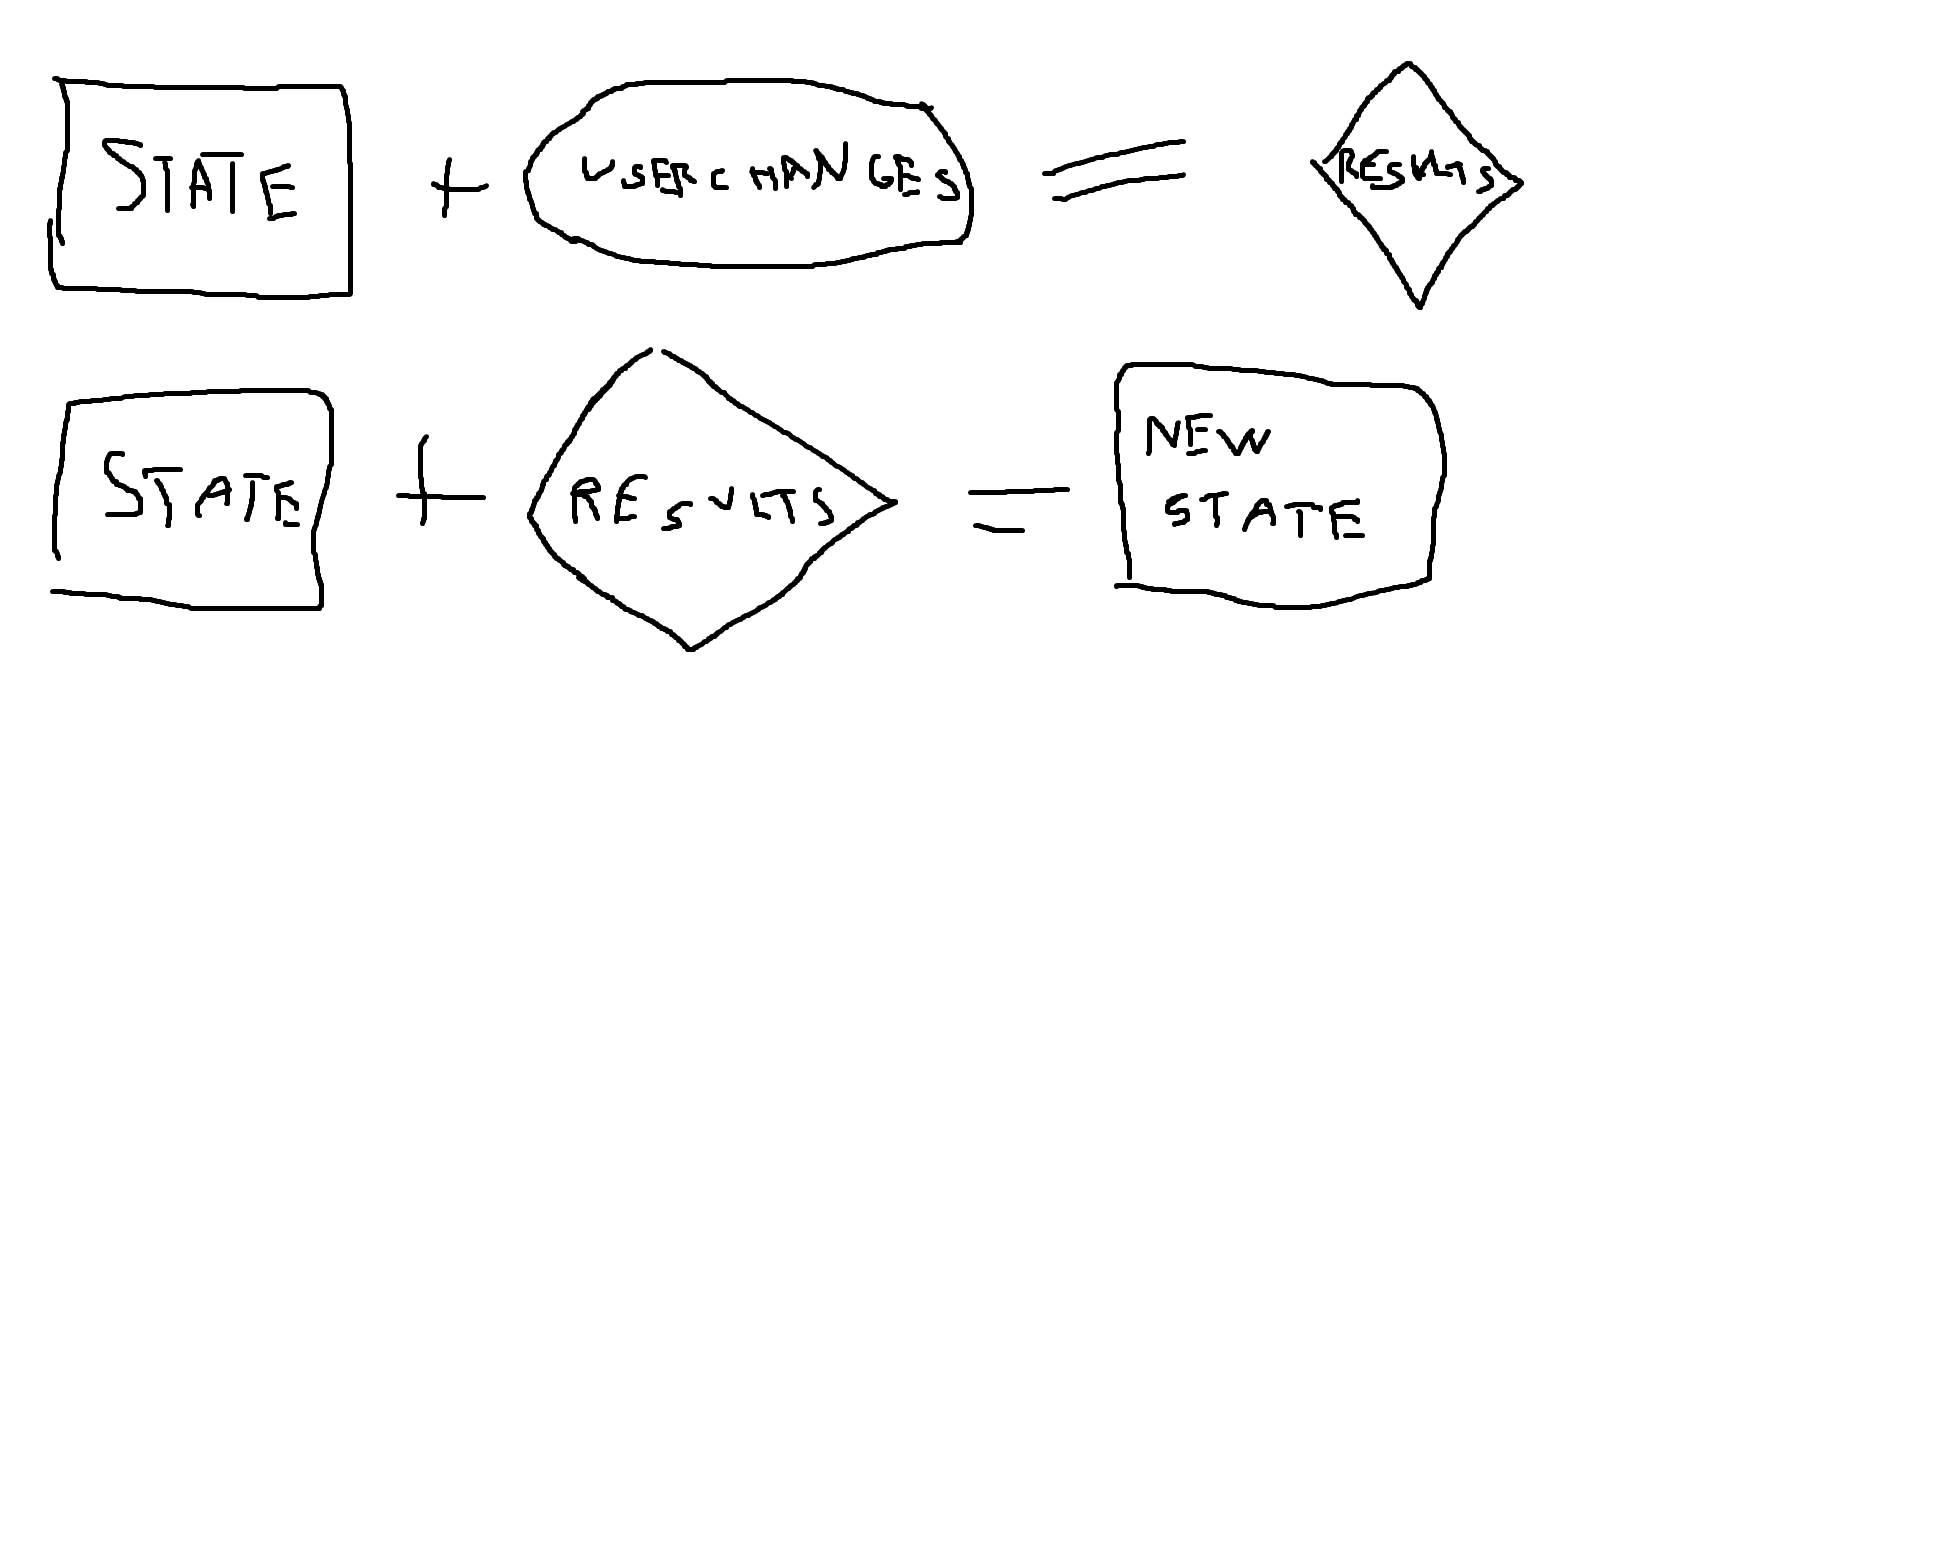 STATE + USERCHANGES = RESULTS
STATE + RESULTS = NEW
STATE